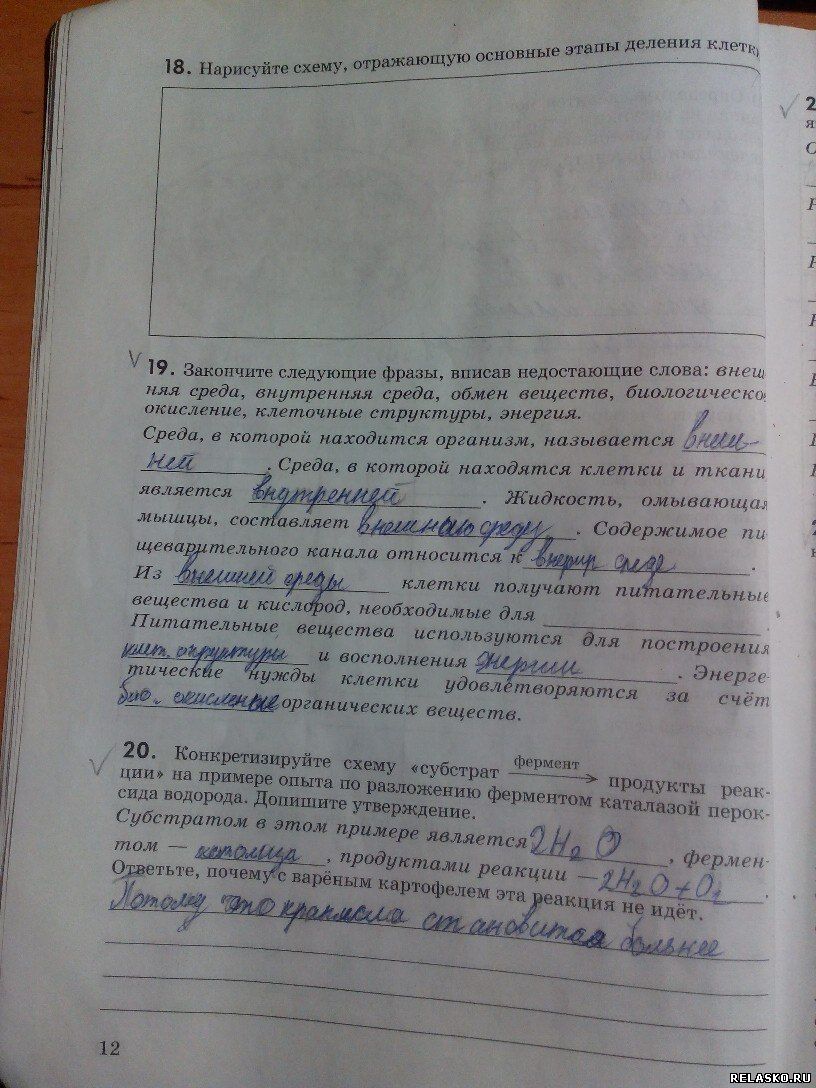 18. Нарисуйте схему, отражающую основные этапы деления клетк
19. Закончите следующие фразы, вписав недостающие слова: внеш
няя среда, внутренняя среда, обмен веществ, биологическо
окисление, клеточные структуры, энергия.
Среда, в которой находится организм, называется внеш-
ней. Среда, в которой находятся клетки и ткани
является внутренней. Жидкость, омывающая
мышцы, составляет внешнюю среду. Содержимое пи
щеварительного канала относится к среде.
Из внешней среды клетки получают питательные
вещества и кислород, необходимые для
Питательные вещества используются для построения
клет. структуры и восполнения энергии. Энерге-
тические нужды клетки удовлетворяются за счёт
био. окисление органических веществ.
20. Конкретизируйте схему «субстрат фермент → продукты реак-
ции» на примере опыта по разложению ферментом каталазой перок-
сида водорода. Допишите утверждение.
Субстратом в этом примере является 2H2O, фермен-
том — , продуктами реакции — 2H2O + O2.
Ответьте, почему с варёным картофелем эта реакция не идёт.
Потому что крахмала становится больше
12
RELASKO.RU